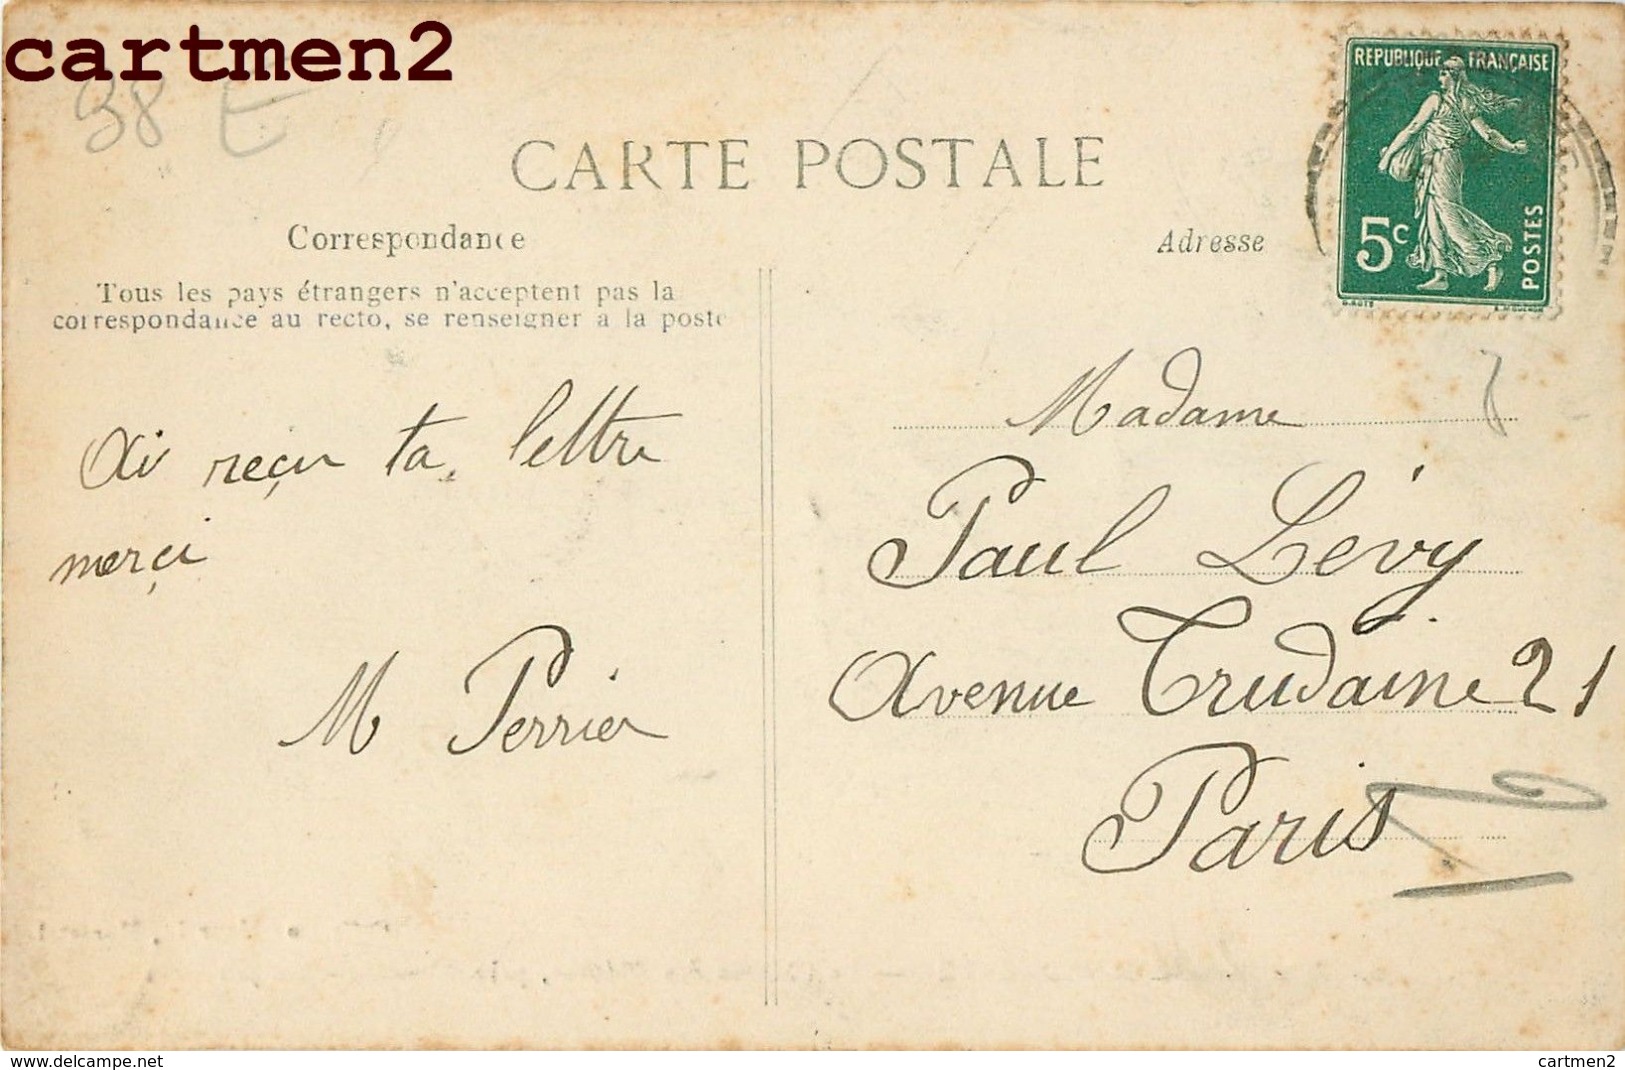 cartmen2
38 E
CARTE POSTALE
REPUBLIQUE FRANÇAISE
5c
POSTES
Correspondance
Adresse
Tous les pays étrangers n'acceptent pas la
correspondance au recto, se renseigner à la poste
Ai reçu ta lettre
merçi
M Perrier
Madame
Paul Lévy
Avenue Trudaine 21
Paris
www.delcampe.net
cartmen2